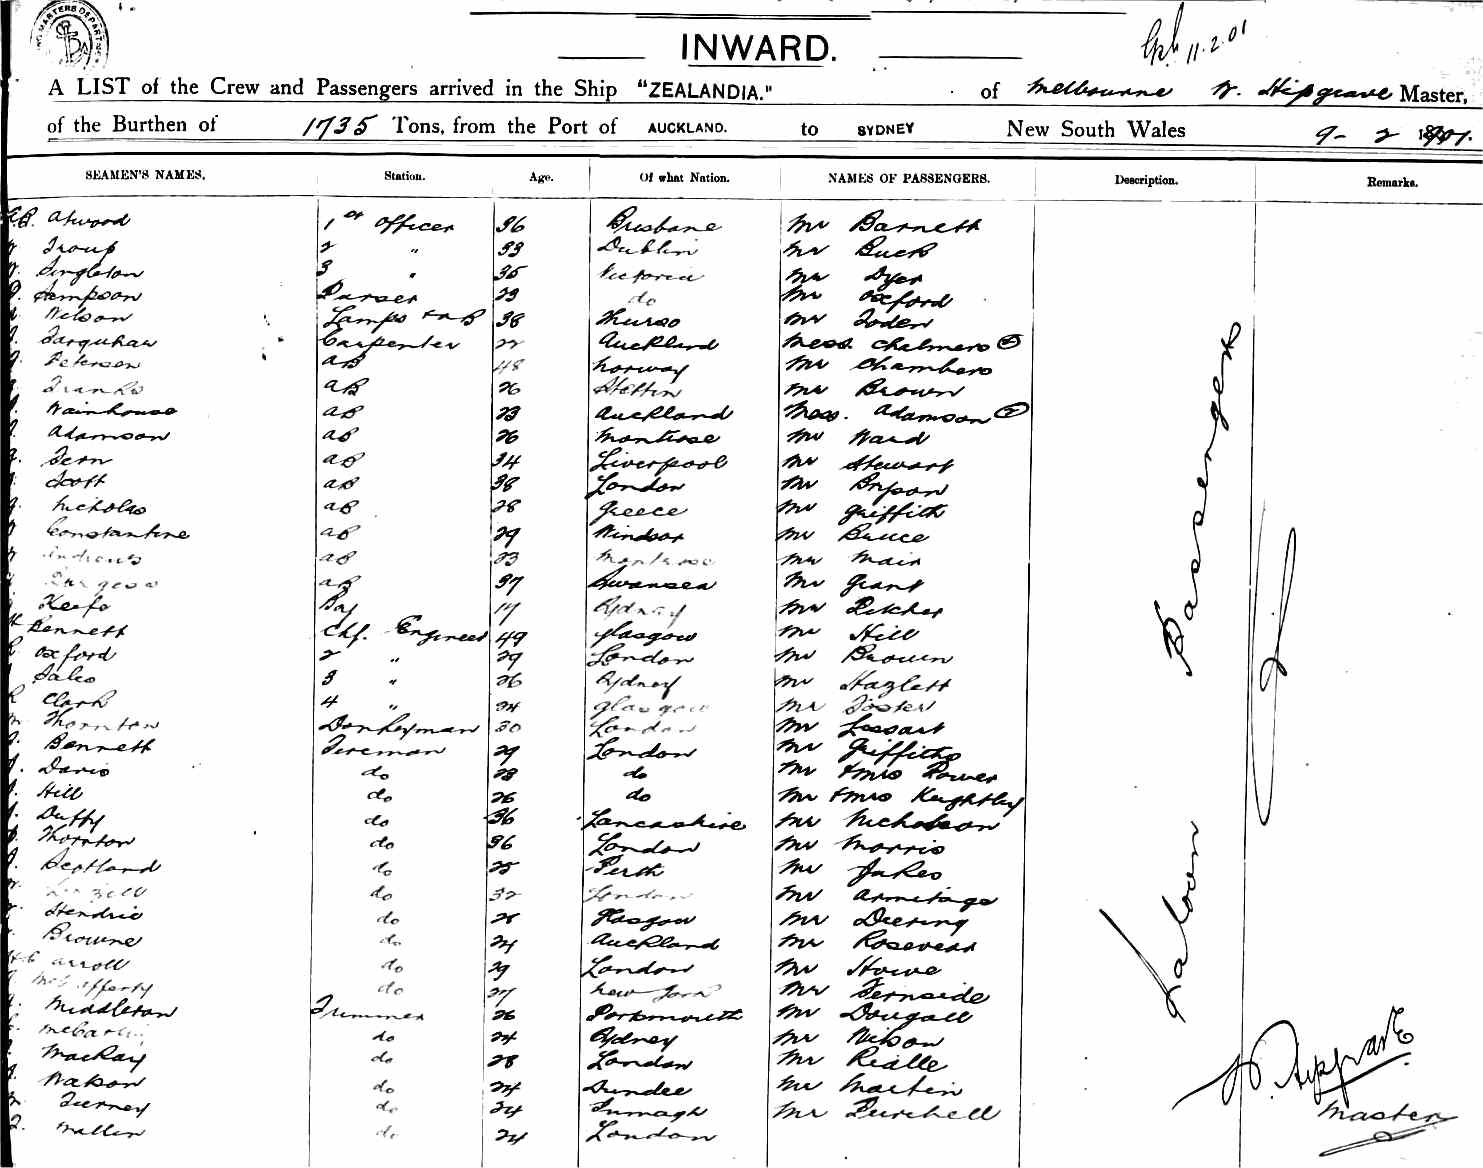 INWARD.
11.2.01
A LIST of the Crew and Passengers arrived in the Ship "ZEALANDIA." of Melbourne W. Hipgrave Master,
of the Burthen of 1735 Tons, from the Port of AUCKLAND. to SYDNEY New South Wales 9 - 2 1901.
SEAMEN'S NAMES. Station. Age. Of what Nation. NAMES OF PASSENGERS. Description. Remarks.
Atwood 1st Officer 36 Brisbane Mr Barnett
Troup 2 " 33 Dublin Mr Buck
Singleton 3 " 35 Victoria Mr Dyer
Sampson Purser 23 do Mr Oxford
Nelson Lamps & AB 38 Thurso Mr Soden
Farquhar Carpenter 22 Auckland Mess. Chalmers 2
Petersen AB 48 Norway Mr Chambers
Franks AB 26 Stettin Mr Brown
Wainhouse AB 23 Auckland Mess. Adamson 2
Adamson AB 26 Montrose Mr Ward
Fern AB 34 Liverpool Mr Stewart
Scott AB 38 London Mr Bryson
Nicholas AB 28 Greece Mr Griffith
Constantine AB 29 Windsor Mr Bruce
AB 23 Montrose Mr Mair
AB 37 Swansea Mr Grant
Keefe Boy 17 Sydney Mr Pitcher
Bennett Chf. Engineer 49 Glasgow Mr Hill
Oxford 2 " 29 London Mr Brown
Sales 3 " 26 Sydney Mr Hazlett
Clark 4 " 24 Glasgow Mr Foster
Thornton Donkeyman 30 London Mr
Bennett Fireman 29 London Mr Griffiths
Davis do 28 do Mr & Mrs Power
Hill do 26 do Mr & Mrs Keightley
Duffy do 36 Lancashire Mr Nicholson
Thornton do 36 London Mr Morris
Scotland do 25 Perth Mr Jakes
do 32 London Mr Armitage
Hendrie do 28 Glasgow Mr Deering
Browne do 24 Auckland Mr Rosevear
Carroll do 29 London Mr Howe
McCafferty do 27 New York Mr Fernside
Middleton Trimmer 26 Portsmouth Mr Dougall
do 24 Sydney Mr Nilson
MacKay do 28 London Mr Rialle
Watson do 24 Dundee Mr Martin
Tierney do 24 Mr Purchell
Mallin do 24 London
Saloon Passengers
W. Hipgrave
Master